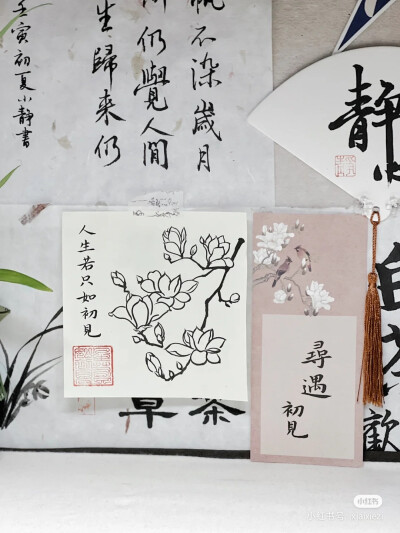 不染歲月
仍覺人間
生歸來仍
壬寅初夏小靜書
靜
人生若只如初見
尋遇
初見
白茶
歡
茶
小红书
小红书号: